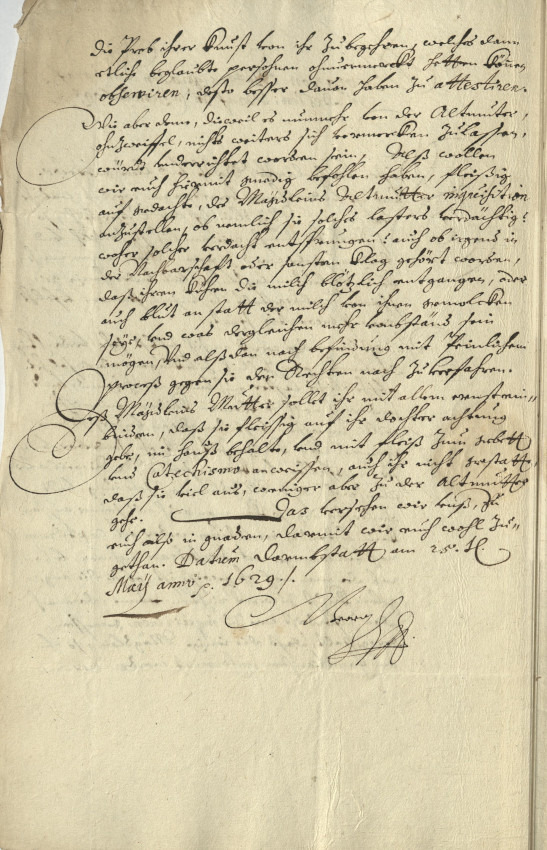 die Prob ihrer Kunst von ihr zubegehren, welches dann
etliche beglaubte personen ohnvermerckt hetten können
observiren, desto besser davon haben zu attestiren.
Wie aber deme, dieweil es nunmehr von der Altmutter,
ohnzweiffel, nichts weiters sich vermercken zulassen,
würdt underrichtet worden sein, Alß wollen
wir euch hiermit gnedig befohlen haben, fleißig
auf gedachte, des Mägdleins Altmutter inquisition
anzustellen, ob nemlich sie solches lasters verdächtig?
woher solcher verdacht entsprungen? auch ob irgend in
der Nachbarschafft oder sonsten klag gehört worden,
daß ihren Kühen die milch plötzlich entgangen, oder
auch blut anstatt der milch von ihnen gemolcken
seye, und was dergleichen mehr umbständ sein
mögen, Und alßdan nach befindung mit Peinlichem
proceß gegen sie den Rechten nach zuverfahren.
Deß Mägdleins Mutter sollet ihr mit allem ernst ein-
binden, daß sie fleissig auf ihr dochter achtung
gebe, im hauß behalte, und mit fleiß zum gebett
und Catechismo anweissen, auch ihr nicht gestatte,
daß sie viel aus, weniger aber zu der Altmutter
gehe. Das versehen wir unß, zu
euch alß in gnaden, darmit wir euch wohl zu-
gethan. Datum Darmbstatt am 25. t[en]
Maij anno p. 1629 /.
Georg